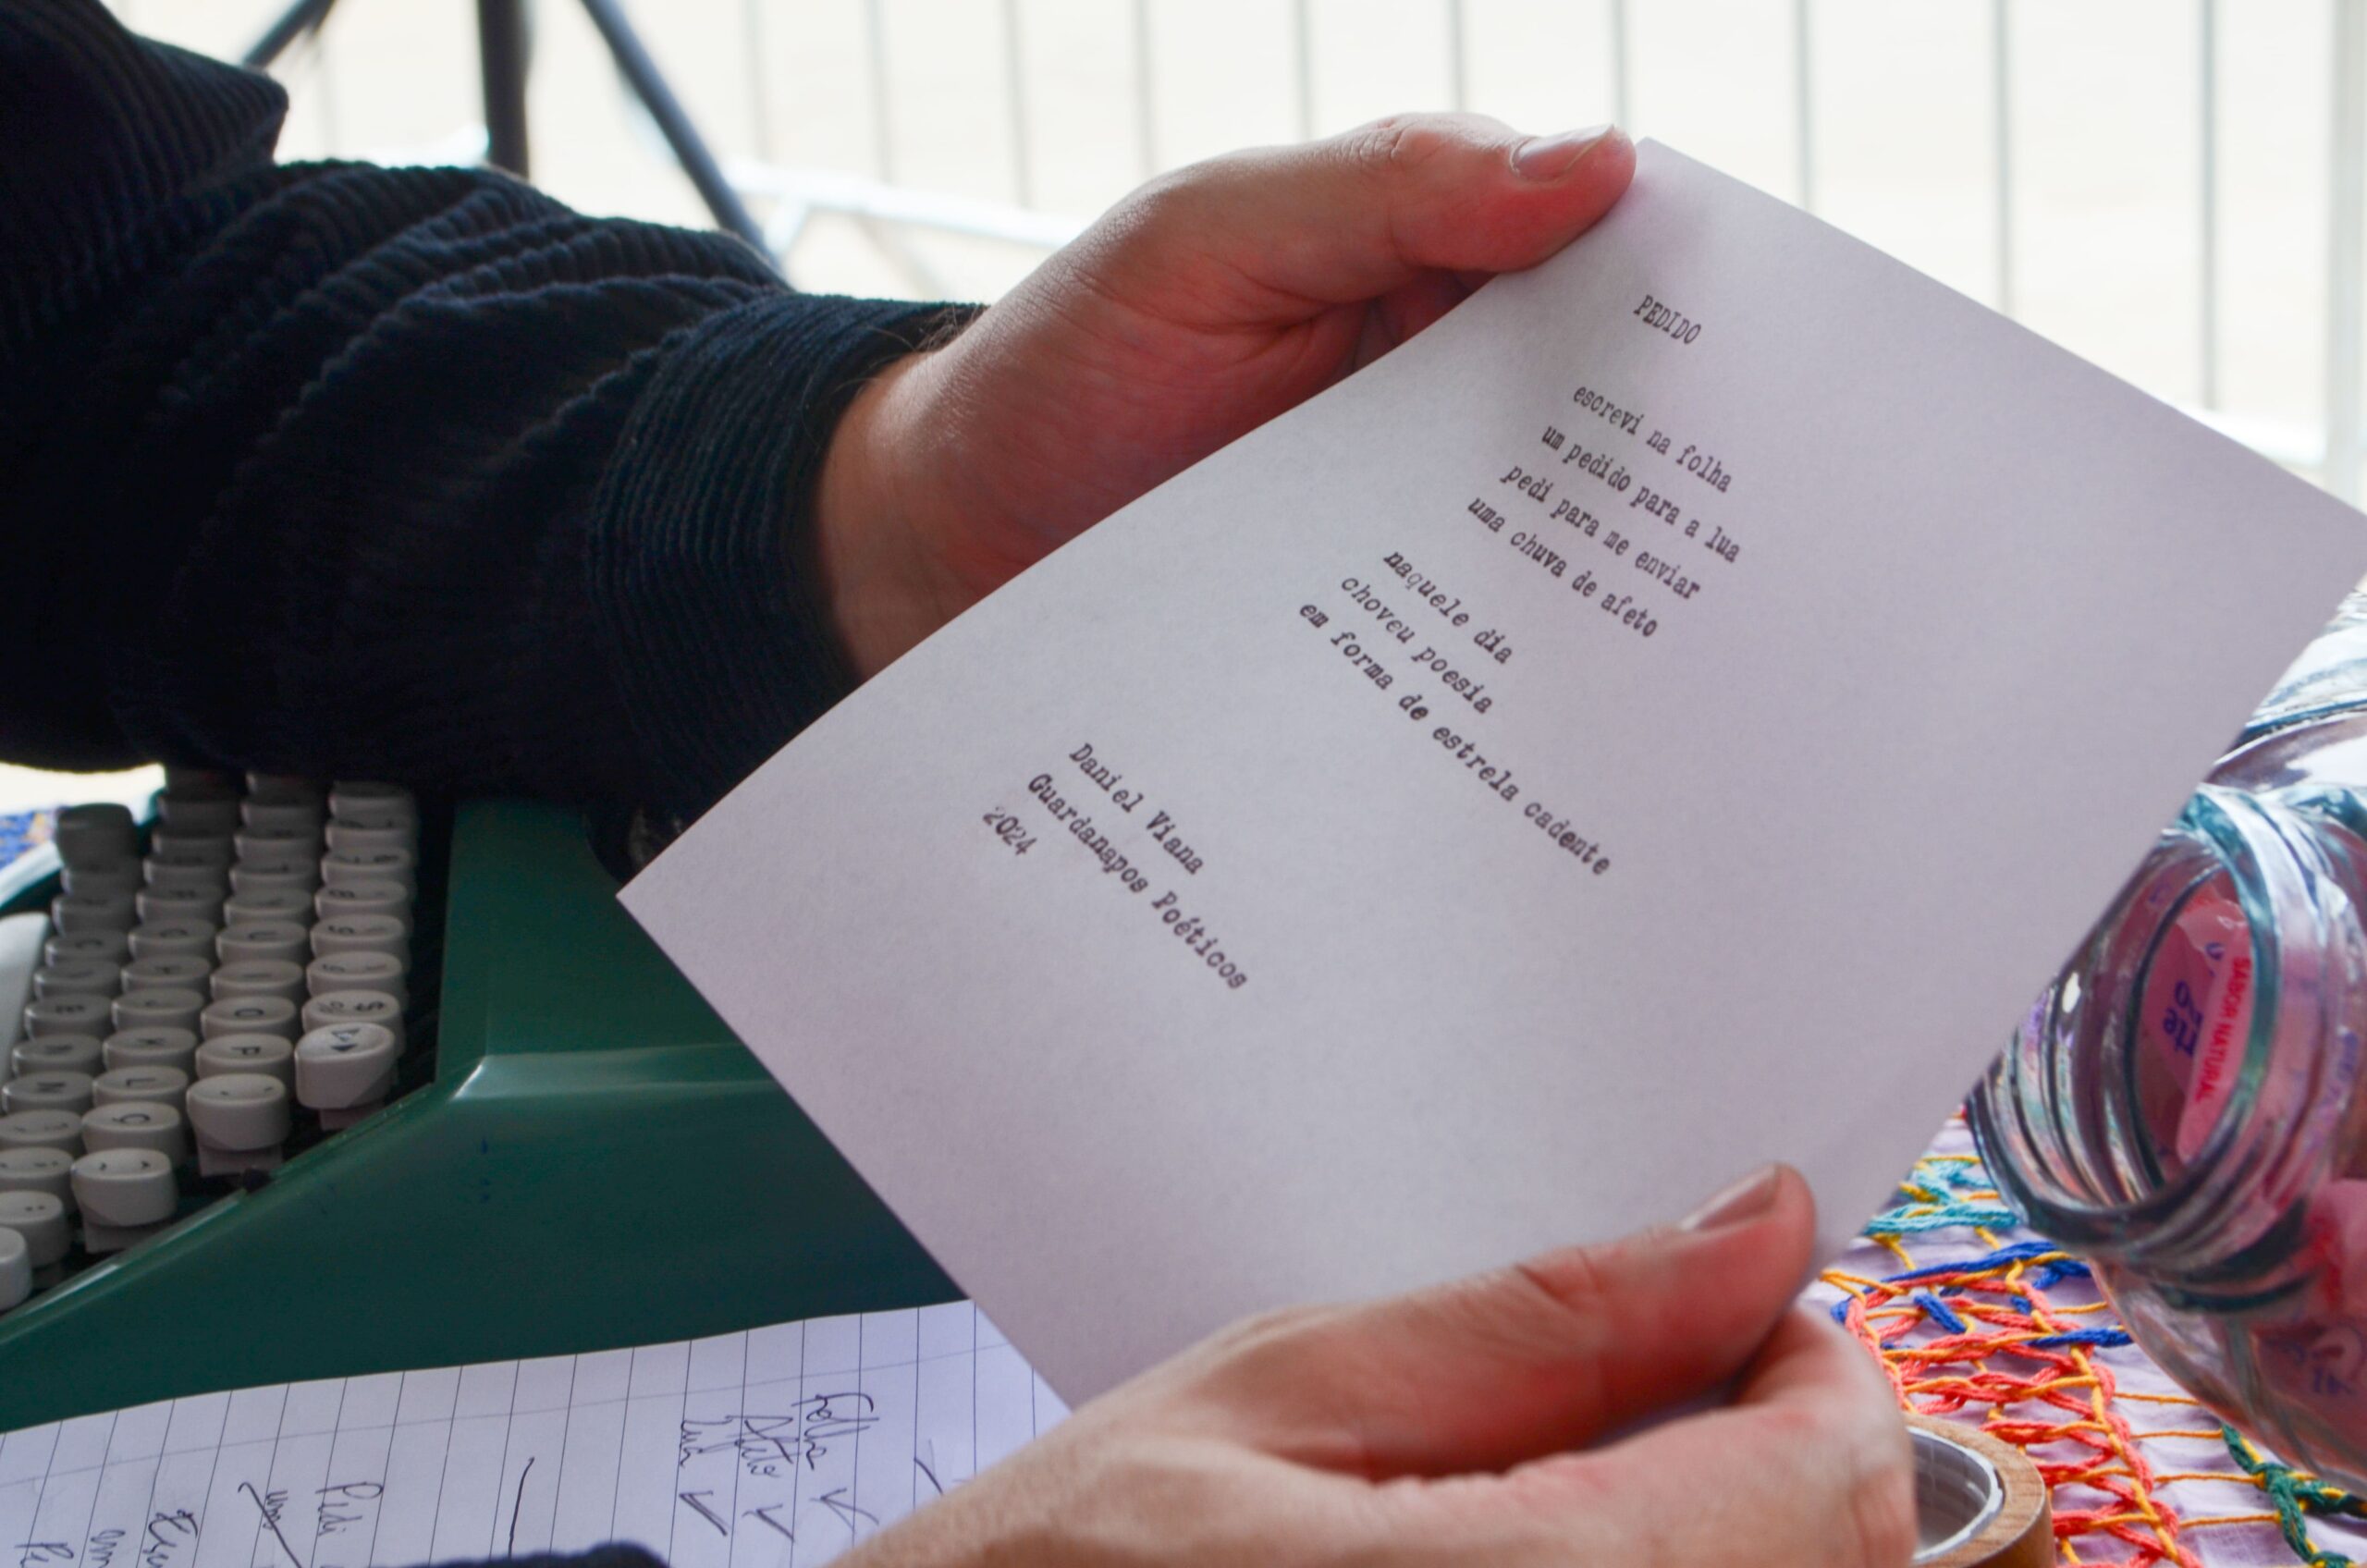 PEDIDO
escrevi na folha
um pedido para a lua
pedi para me enviar
uma chuva de afeto
naquele dia
choveu poesia
em forma de estrela cadente
Daniel Viana
Guardanapos Poéticos
2024
Folha
Afeto
Lua
Pedi
um
SABOR NATURAL